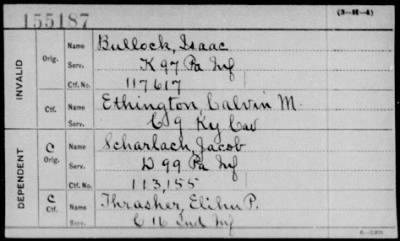 155187
(3-H-4)
INVALID
Orig.
Name
Bullock, Isaac
Serv.
K 97 Pa Inf
Ctf. No.
117617
Ctf.
Name
Ethington, Calvin M.
Serv.
C 9 Ky Cav
DEPENDENT
C
Orig.
Name
Scharlach, Jacob
Serv.
D 99 Pa Inf
Ctf. No.
113,155
C
Ctf.
Name
Thrasher, Elihu P.
Serv.
C 16 Ind Inf